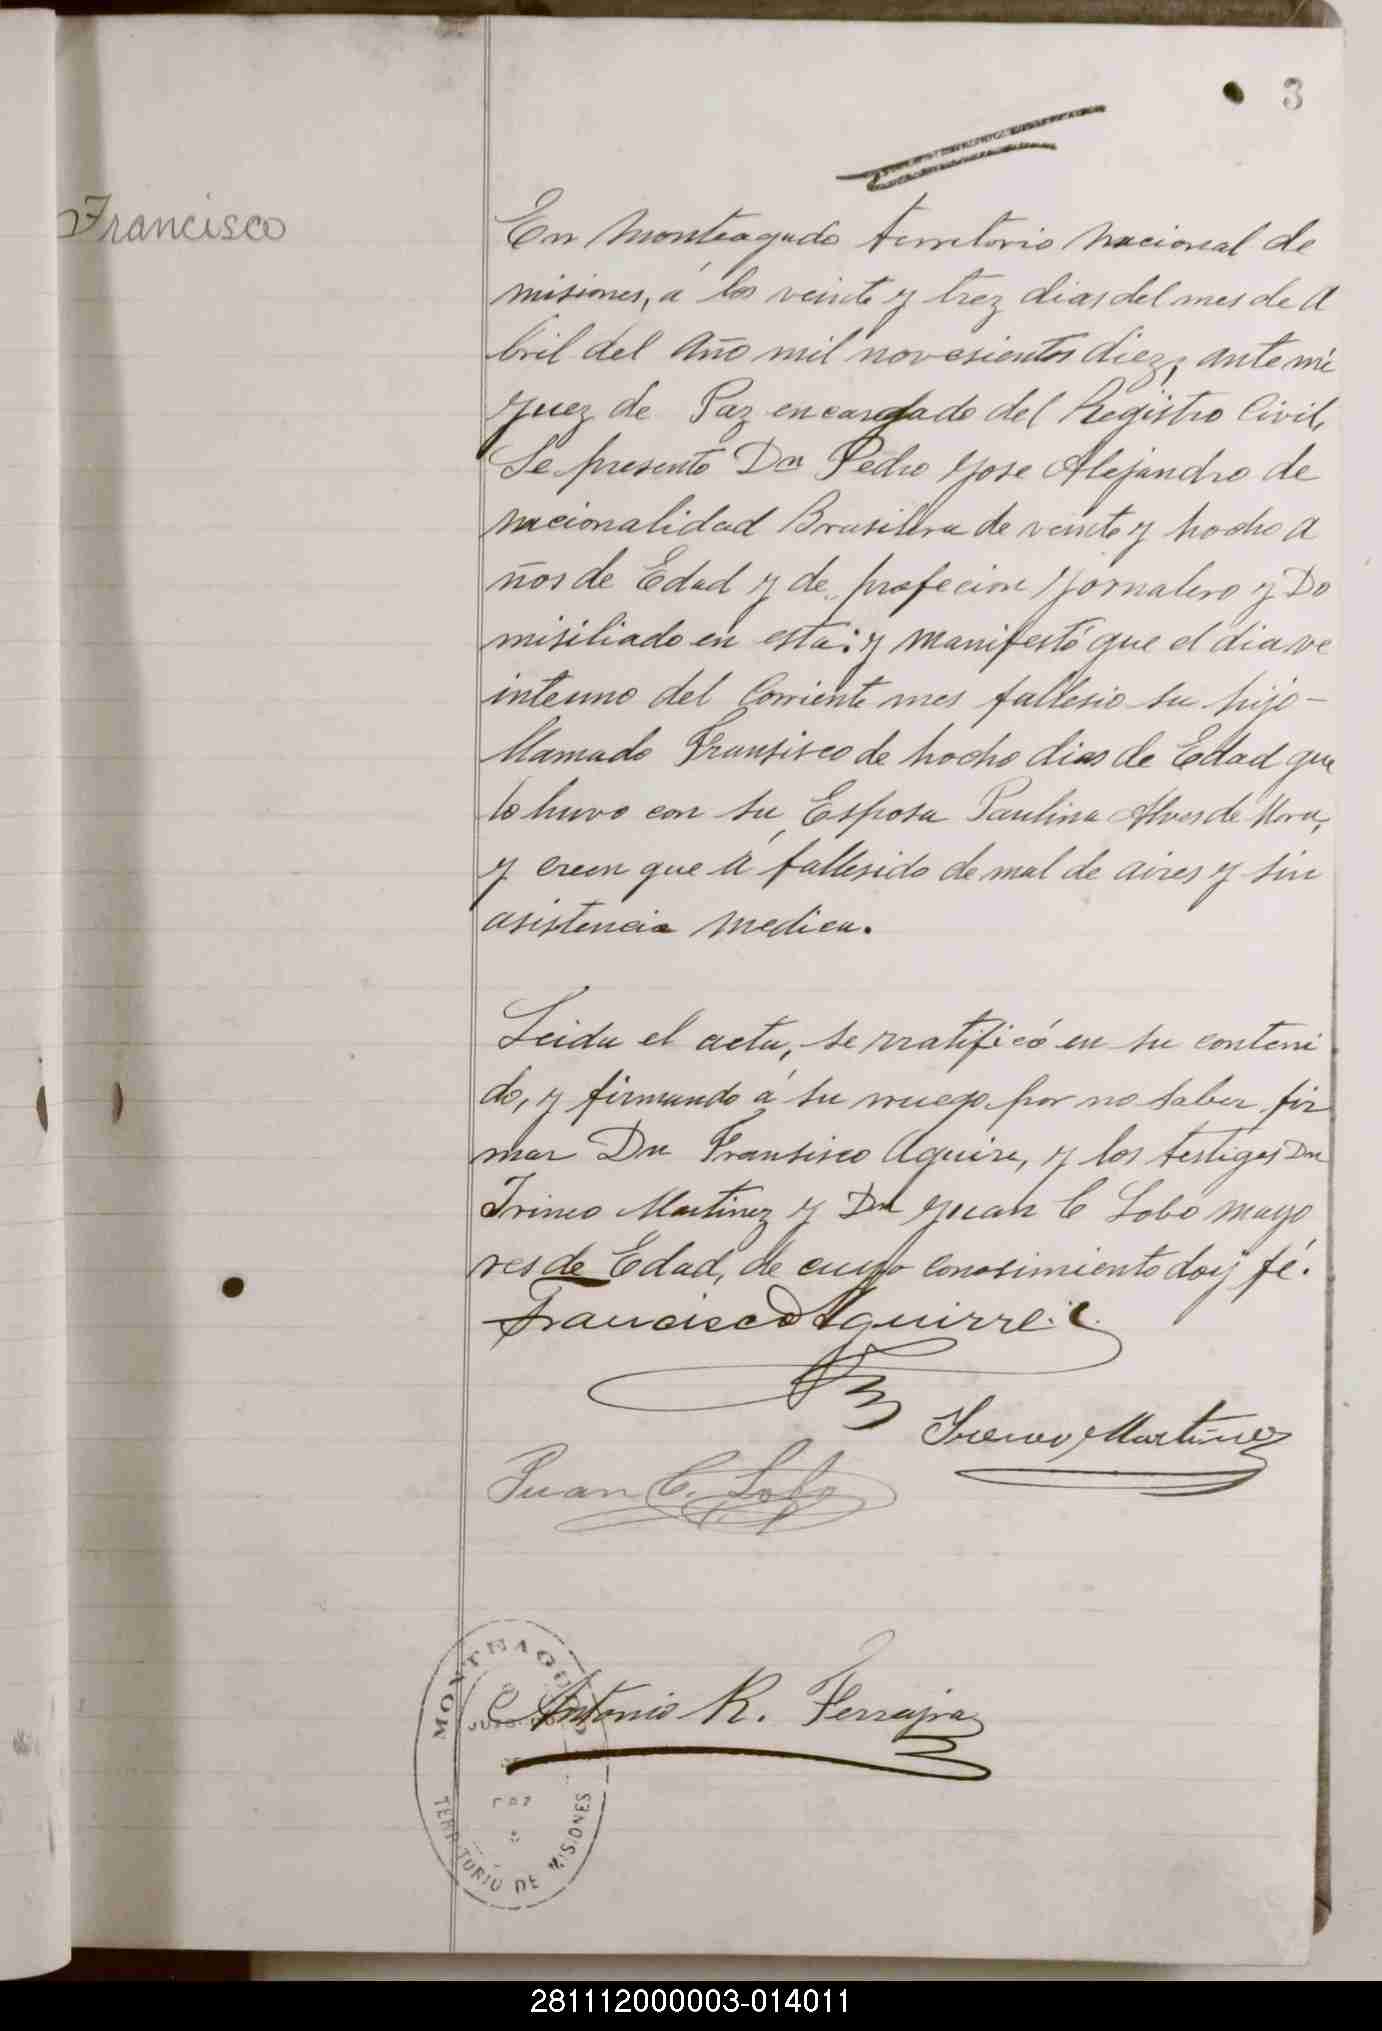 3
Francisco
En Monteagudo territorio Nacional de
misiones, á los veinte y trez dias del mes de A
bril del Año mil novesientos diez, ante mi
Yuez de Paz encargado del Registro Civil,
Se presentó Dn Pedro Yose Alejandro de
nacionalidad Brasilera de veinte y hocho a
ños de Edad y de profecion Yornalero y Do
misiliado en esta: y manifestó que el dia ve
inteuno del Corriente mes fallesio su hijo -
llamado Fransisco de hocho dias de Edad que
lo huvo con su Esposa Paulina Alves de Mora,
y creen que á fallesido de mal de aires y sin
asistencia medica.
Leida el acta, se rratificó en su conteni
do, y firmando á su rruego por no saber fir
mar Dn Fransisco Aguire, y los testigos Dn
Irineo Martinez y Dn Yuan C Lobo mayo
res de Edad, de cuyo conosimiento doÿ fé.
Francisco Aguirre
Ireneo Martinez
Juan C. Lobo
Antonio R. Ferrajra
MONTEAGUDO
JUZGADO
DE
PAZ
TERRITORIO DE MISIONES
281112000003-014011